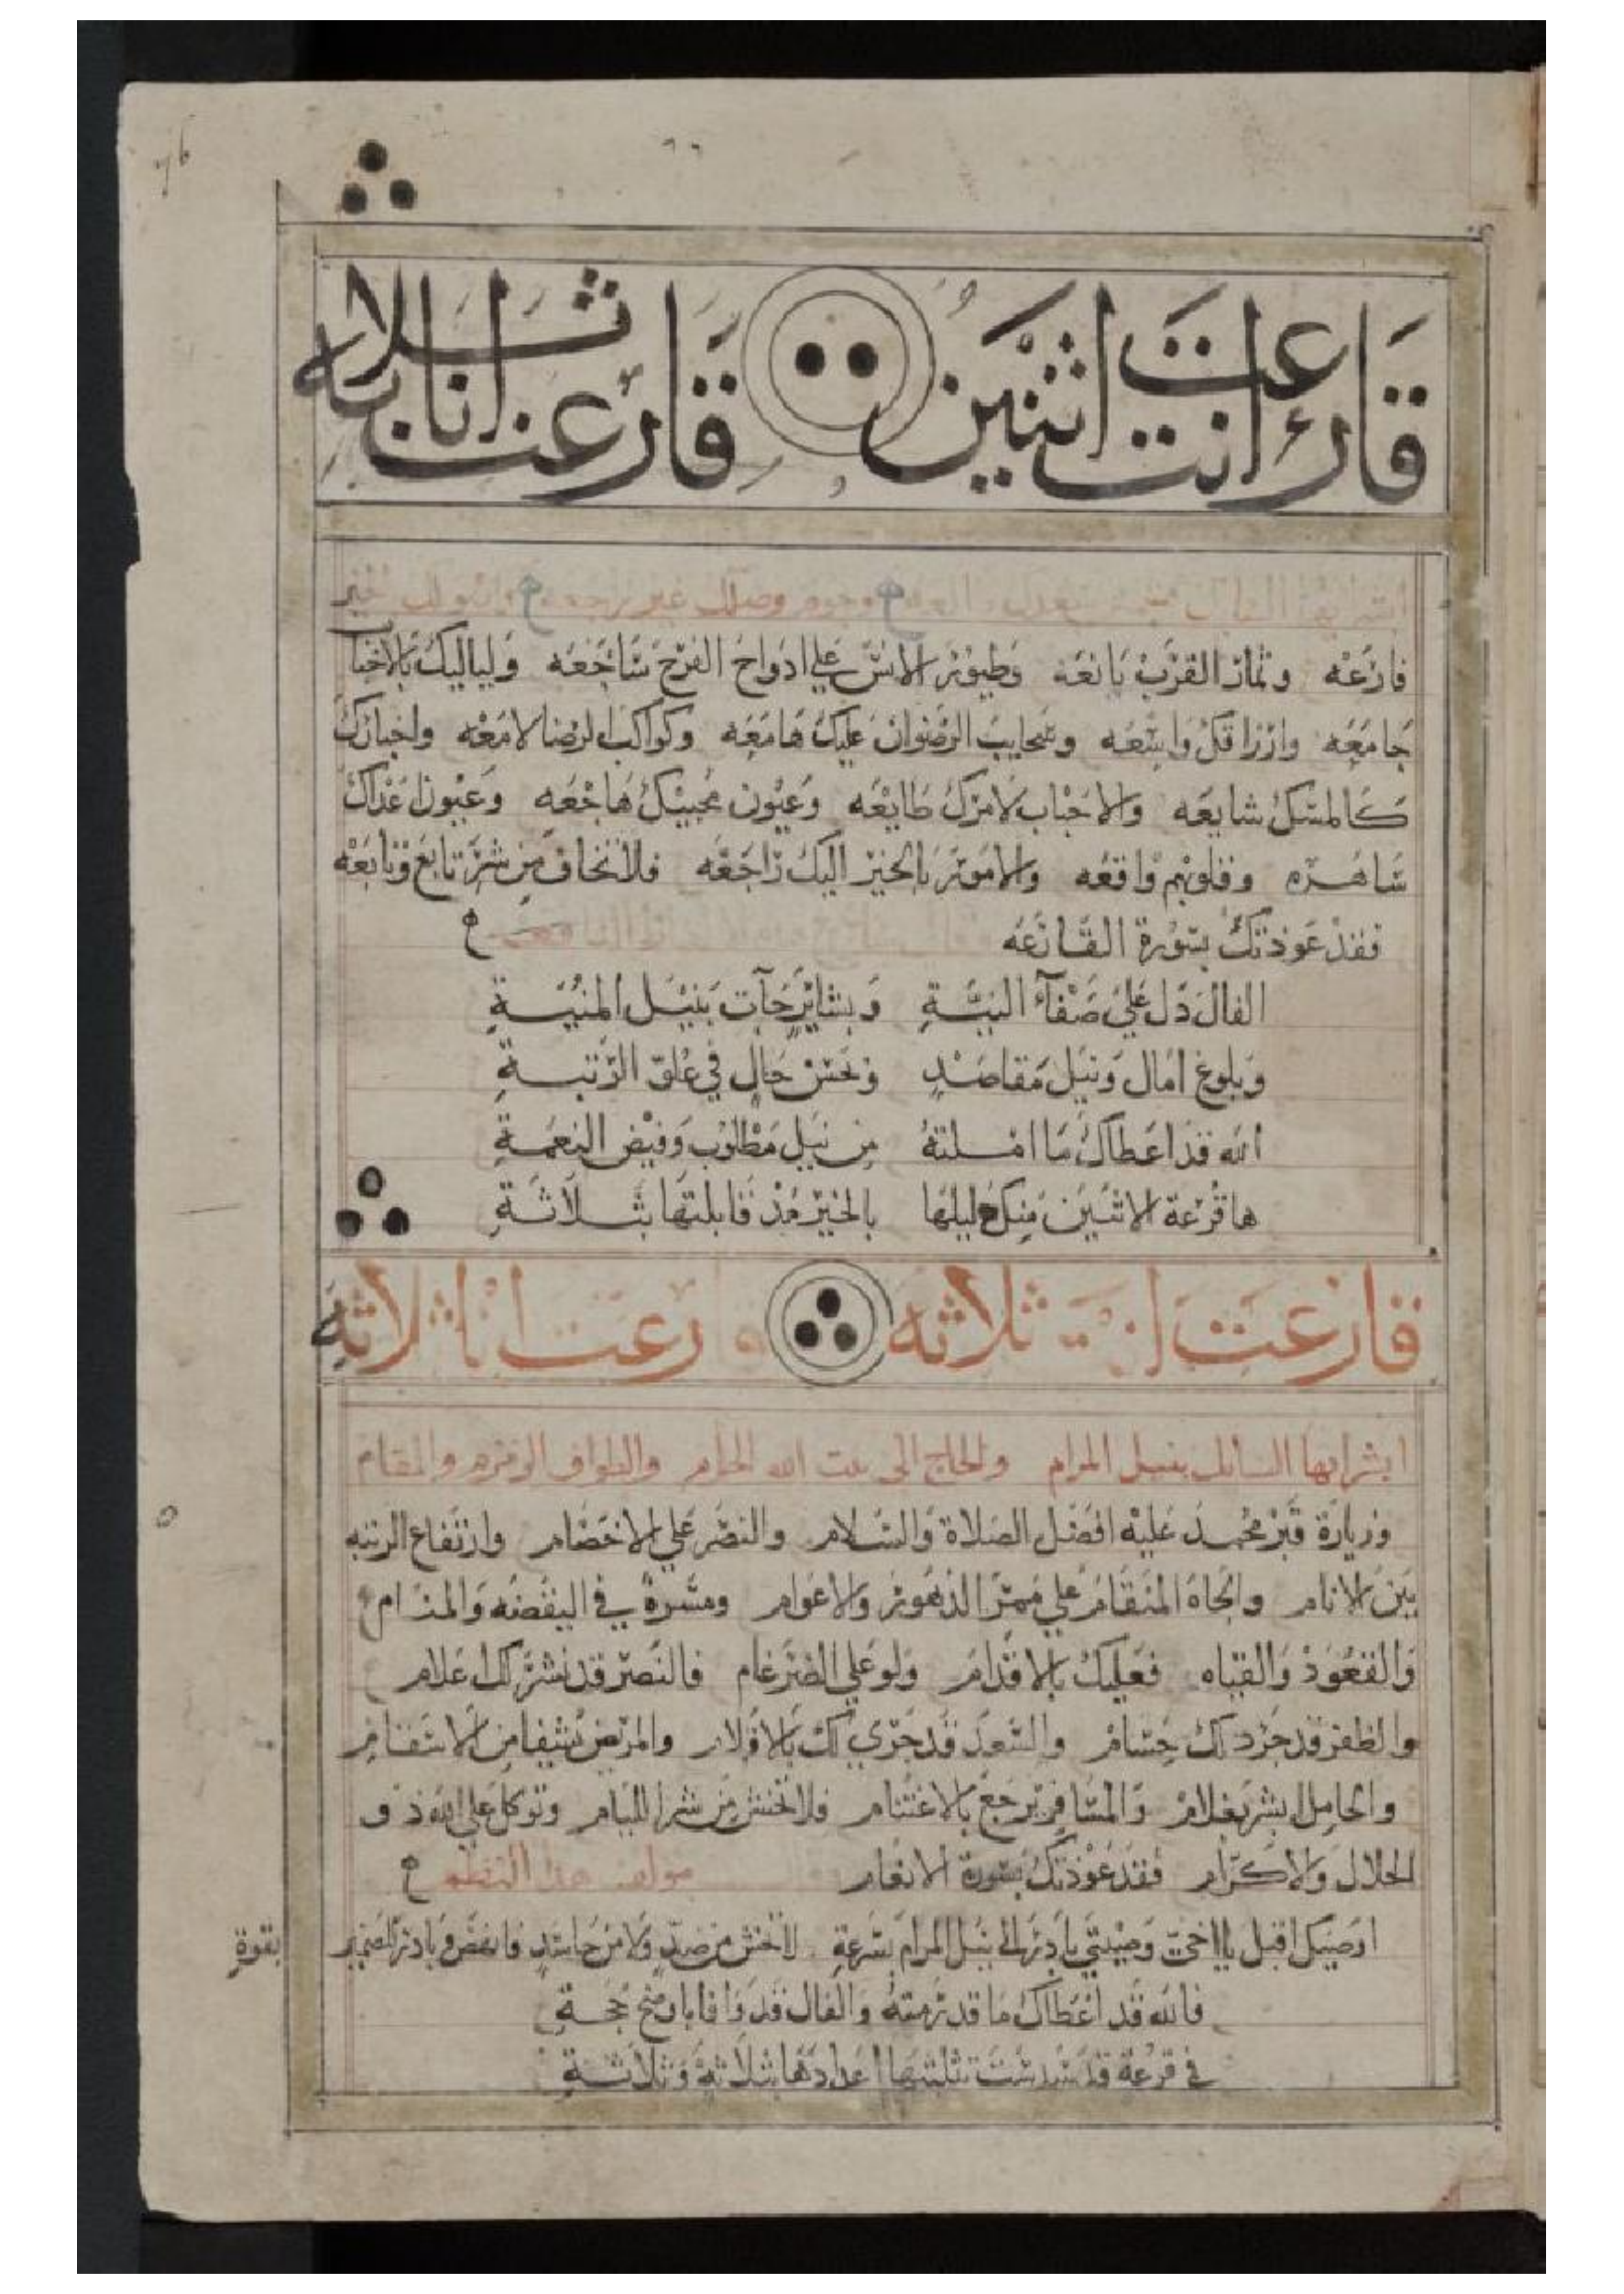 قارعت انت اثنين قارعت انا بثلاثه
ابشر ايها
قارعه وثمار القرب يانعه وطيور الانس علي ادواح الفرح ساجعه ولياليك بالاحبا
جامعه وارزاقك واسعه وسحايب الرضوان عليك هامعه وكواكب الرضا لامعه واخبارك
كالمسك شايعه والاحباب لامرك طايعه وعيون محبينك هاجعه وعيون اعداك
ساهره وقلوبهم واقعه والامور بالخير اليك راجعه فلا تخاف من شر تابع وتابعه
فقد عوذتك بسورة القارعه
الفال دل علي صفآء النيـة وبشاير جآت بنيل المنيـة
وبلوغ امال ونيل مقاصد وحسن حال في علو الرتبـة
الله قد اعطاك ما املته من نيل مطلوب وفيض النعمـة
ها قرعة الاثنين منك دليلها بالخير مذ قابلتها بثلاثة
قارعت انت ثلاثه قارعت انا ثلاثه
ابشر ايها السائل بنيل المرام والحاج الى بيت الله الحرام والطواف والزمزم والمقام
وزيارة قبر محمد عليه افضل الصلاة والسلام والنصر علي الاخصام وارتفاع الرتبه
بين الانام والجاه المقام علي ممر الدهور والاعوام ومسرة في اليقضه والمنام
والقعود والقيام فعليك بالاقدام ولو علي الضرغام فالنصر قد نشر لك اعلام
والظفر قد جرد لك حسام والسعد قد جرى لك بالاقلام والمريض يشفا من الاسقام
والحامل ابشر بغلام والمسافر يرجع بالاغتنام فلا تخش من شر الليام وتوكل علي الله ذو
الجلال والاكرام فقد عوذتك بسورة الانعام مولف هذا النظم
اوصيك اقبل يا اخي وصيتي بادر الي نيل المرام بسرعة لا تخش من ضد ولا من حاسد فانهض وبادر للضمير بقوة
فالله قد اعطاك ما قد رمته والفال قد وافا باوضح حجـة
في قرعة قد سددت تثليثها اعدادها بثلاثة وثلاثـة